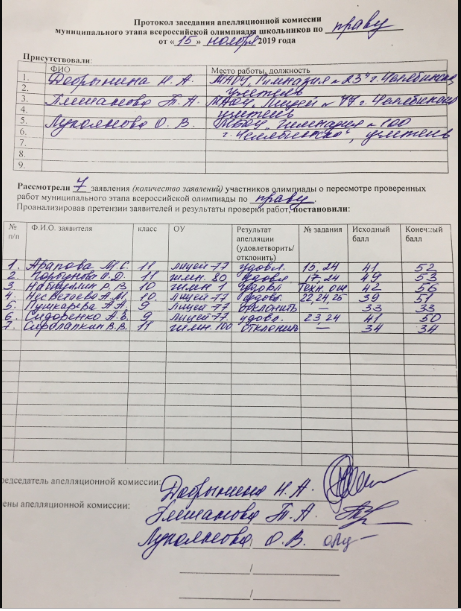 Протокол заседания апелляционной комиссии
муниципального этапа всероссийской олимпиады школьников по праву
от « 15 » ноября 2019 года
Присутствовали:
ФИО Место работы, должность
1. Добрынина Н. А. МАОУ, Гимназия № 23 г. Челябинска,
2. учитель
3. Т. А. МАОУ, Лицей № 77 г. Челябинска
4. учитель
5. О. В. МБОУ, Гимназия № 100
6. г. Челябинска", учитель
7.
8.
9
Рассмотрели 7 заявления (количество заявлений) участников олимпиады о пересмотре проверенных
работ муниципального этапа всероссийской олимпиады по праву.
Проанализировав претензии заявителей и результаты проверки работ, постановили:
№ п/п Ф.И.О. заявителя класс ОУ Результат апелляции (удовлетворить/ отклонить) № задания Исходный балл Конечный балл
1. Арапова М. С. 11 лицей 77 удовл. 15, 24 41 52
2. 11 гимн. 80 удовл. 17, 24 49 53
3. 10 гимн 1 удовл. Техн. ош 42 56
4. А М. 10 лицей 77 удовл. 22, 24, 25 39 51
5. Пушкарева А А 9 лицей 77 отклонить — 33 33
6. Сидоренко А. Е. 9 лицей 77 удовл. 23, 24 41 50
7. В. В. 11 гимн 100 отклонить — 34 34
редседатель апелляционной комиссии: Добрынина Н. А.
ены апелляционной комиссии: Т. А.
О. В.